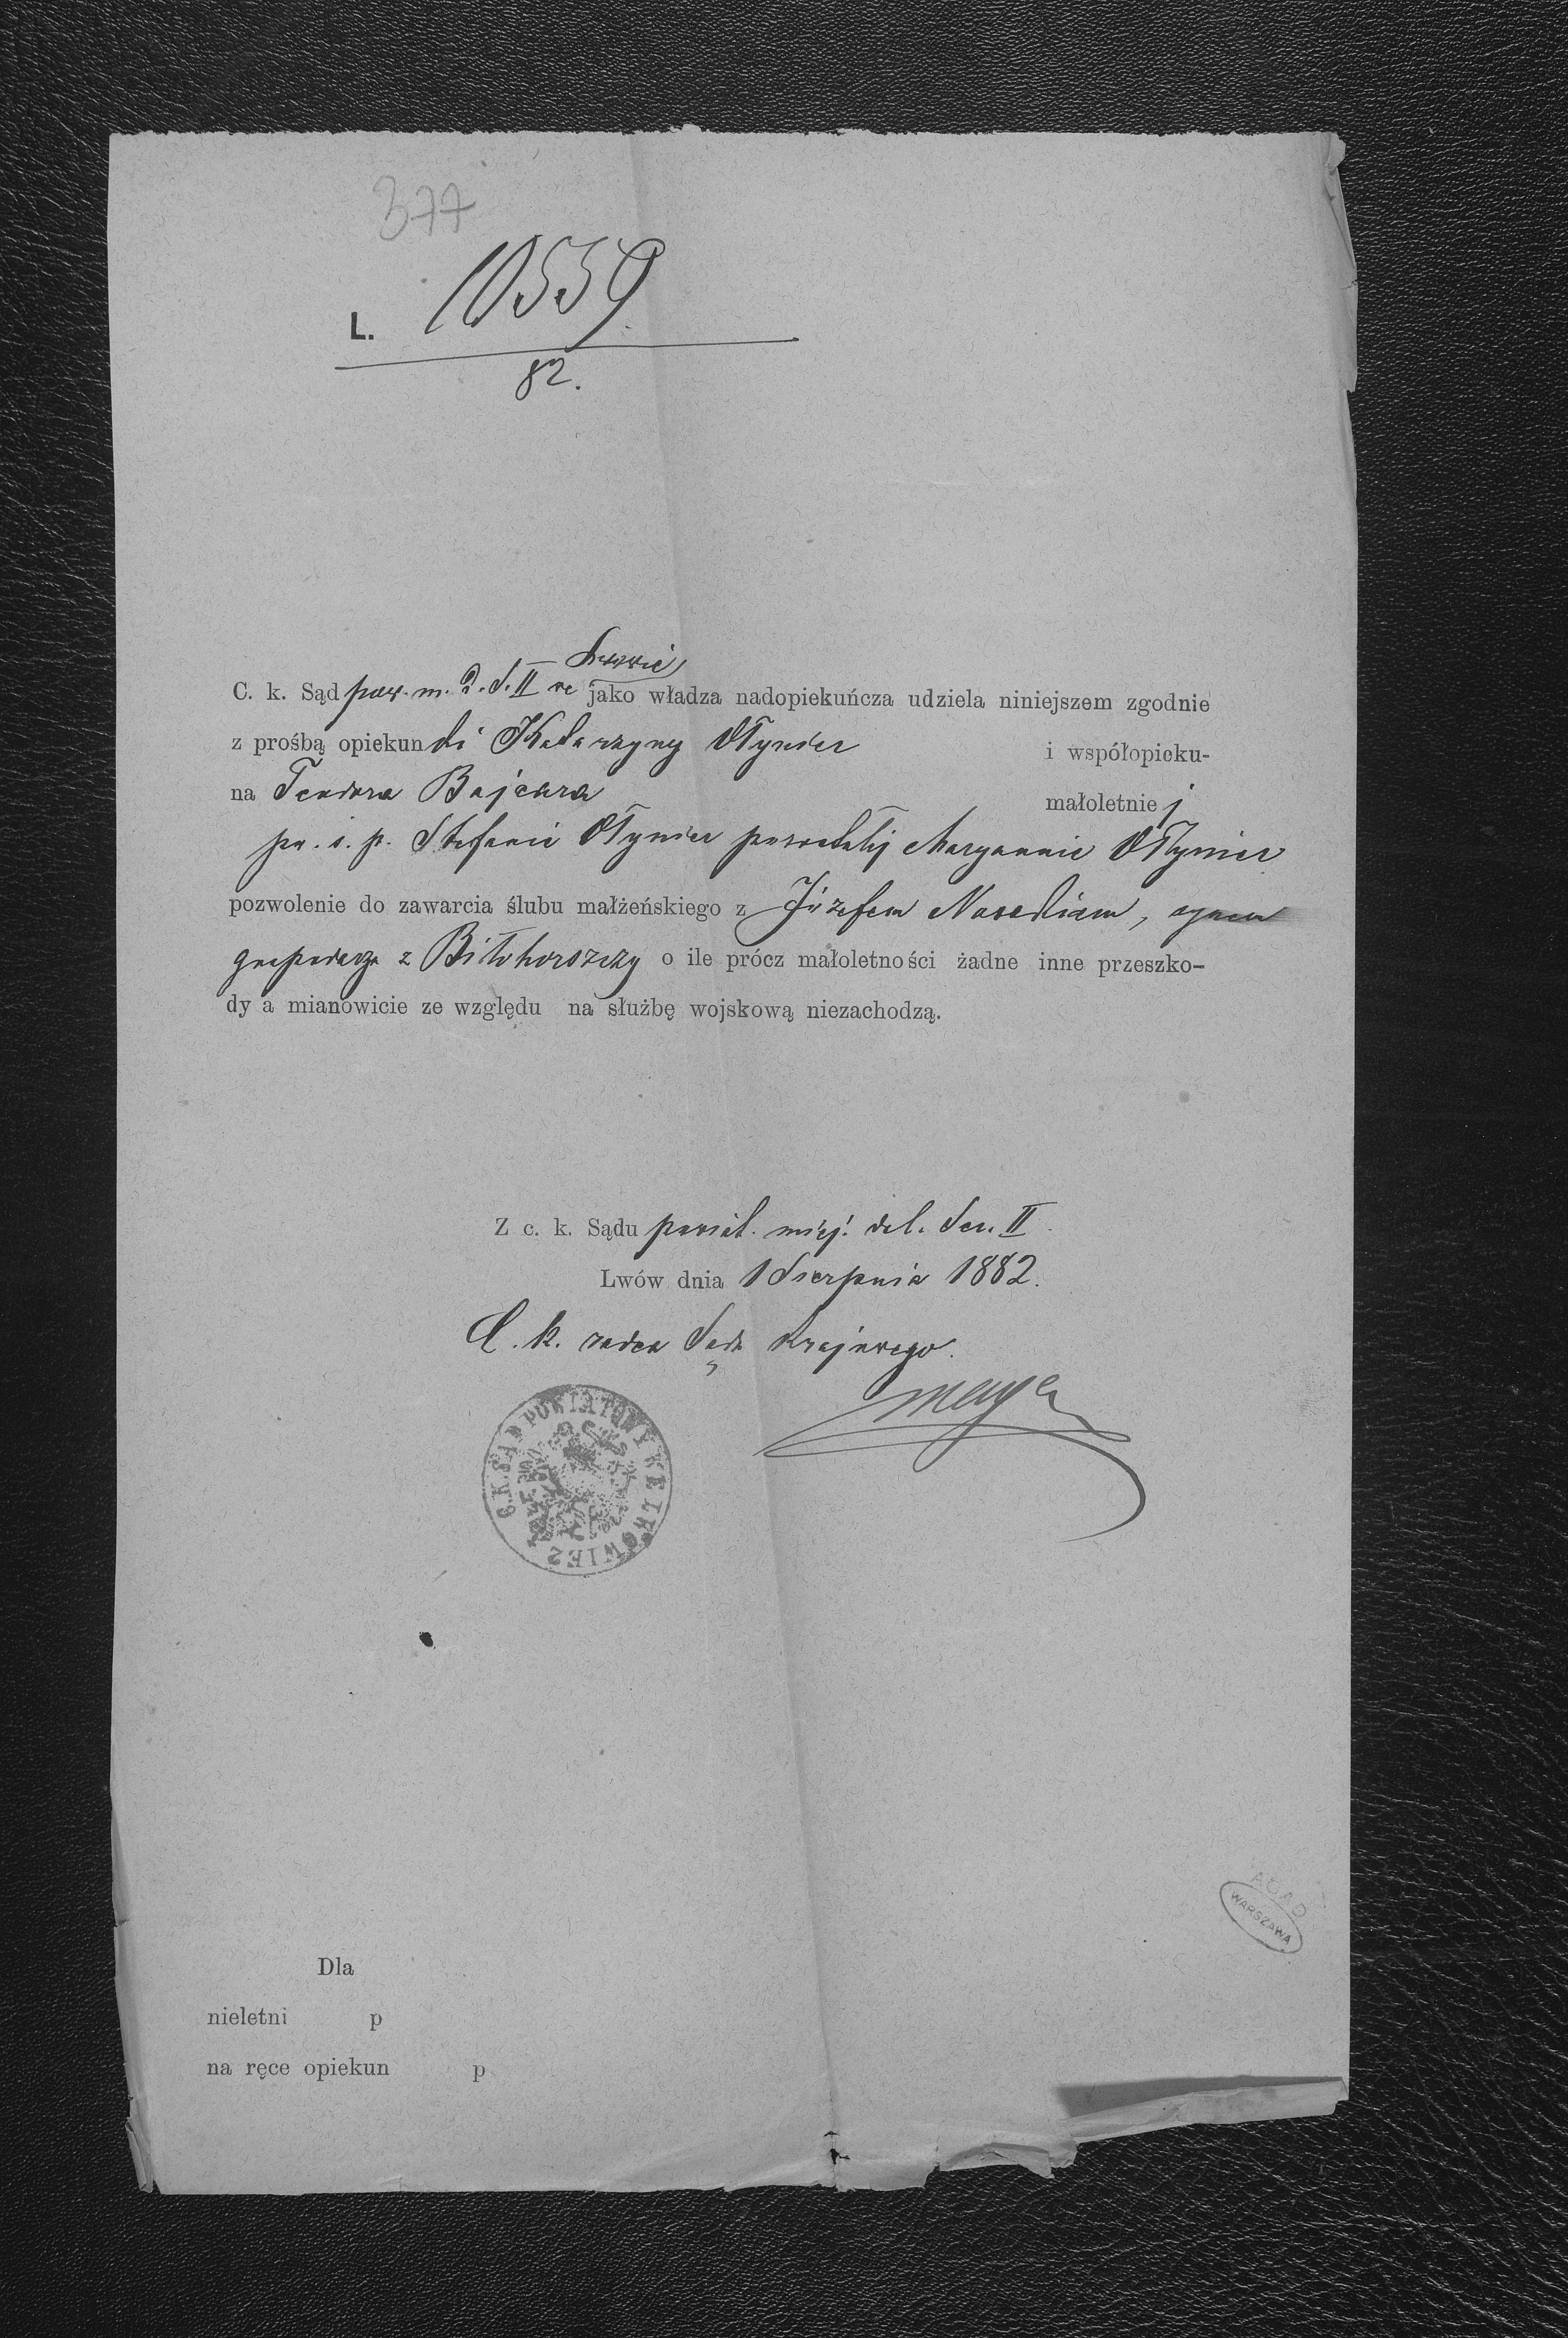 377
L. 10559
82.
Lwowie
C. k. Sąd pow. m. d. S. II we jako władza nadopiekuńcza udziela niniejszem zgodnie
z prośbą opiekunki Katarzyny Ołynier i współopieku-
na Teodora Bajcara małoletniej
po. ś. p. Stefanie Ołynier pozostałej Maryannie Ołynier
pozwolenie do zawarcia ślubu małżeńskiego z Józefem, synem
gospodarza z Biłohorszczy o ile prócz małoletności żadne inne przeszko-
dy a mianowicie ze względu na służbę wojskową niezachodzą.
Z c. k. Sądu powiat. miej. del. Sec. II
Lwów dnia 1 Sierpnia 1882.
C. k. radca Sądu krajowego.
Mayer
C.K. SĄD POWIATOWY WE LWOWIE
AGAD
WARSZAWA
Dla
nieletni p
na ręce opiekun p